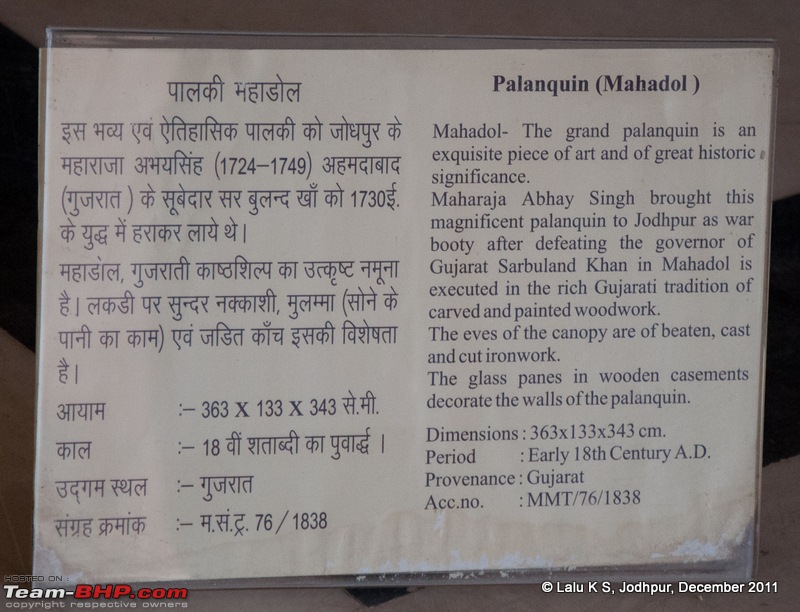 पालकी महाडोल
इस भव्य एवं ऐतिहासिक पालकी को जोधपुर के
महाराजा अभयसिंह (1724–1749) अहमदाबाद
(गुजरात ) के सूबेदार सर बुलन्द खाँ को 1730ई.
के युद्ध में हराकर लाये थे।
महाडोल, गुजराती काष्ठशिल्प का उत्कृष्ट नमूना
है। लकडी पर सुन्दर नक्काशी, मुलम्मा (सोने के
पानी का काम) एवं जडित काँच इसकी विशेषता
है।
आयाम :– 363 X 133 X 343 से.मी.
काल :– 18 वीं शताब्दी का पुवार्द्ध ।
उद्गम स्थल :– गुजरात
संग्रह क्रमांक :– म.सं.ट्र. 76 / 1838
Palanquin (Mahadol )
Mahadol- The grand palanquin is an
exquisite piece of art and of great historic
significance.
Maharaja Abhay Singh brought this
magnificent palanquin to Jodhpur as war
booty after defeating the governor of
Gujarat Sarbuland Khan in Mahadol is
executed in the rich Gujarati tradition of
carved and painted woodwork.
The eves of the canopy are of beaten, cast
and cut ironwork.
The glass panes in wooden casements
decorate the walls of the palanquin.
Dimensions : 363x133x343 cm.
Period : Early 18th Century A.D.
Provenance : Gujarat
Acc.no. : MMT/76/1838
HOSTED ON :
Team-BHP.com
copyright respective owners
© Lalu K S, Jodhpur, December 2011